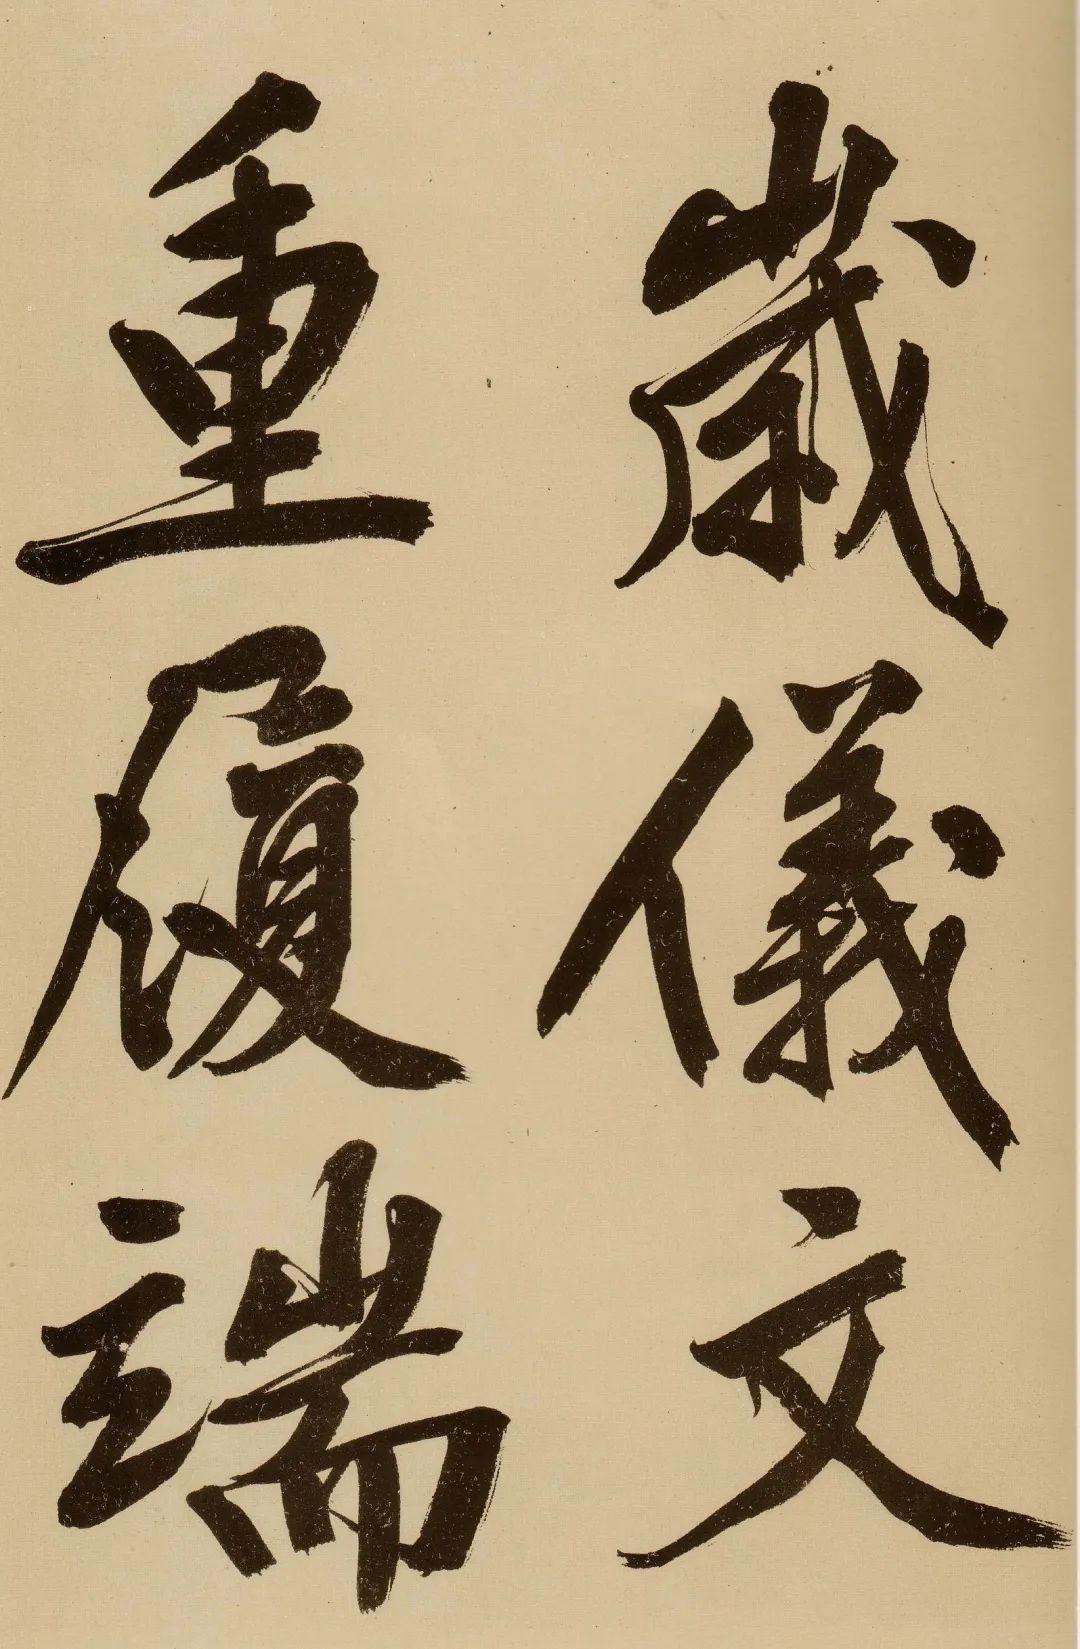 歲儀文
重履端